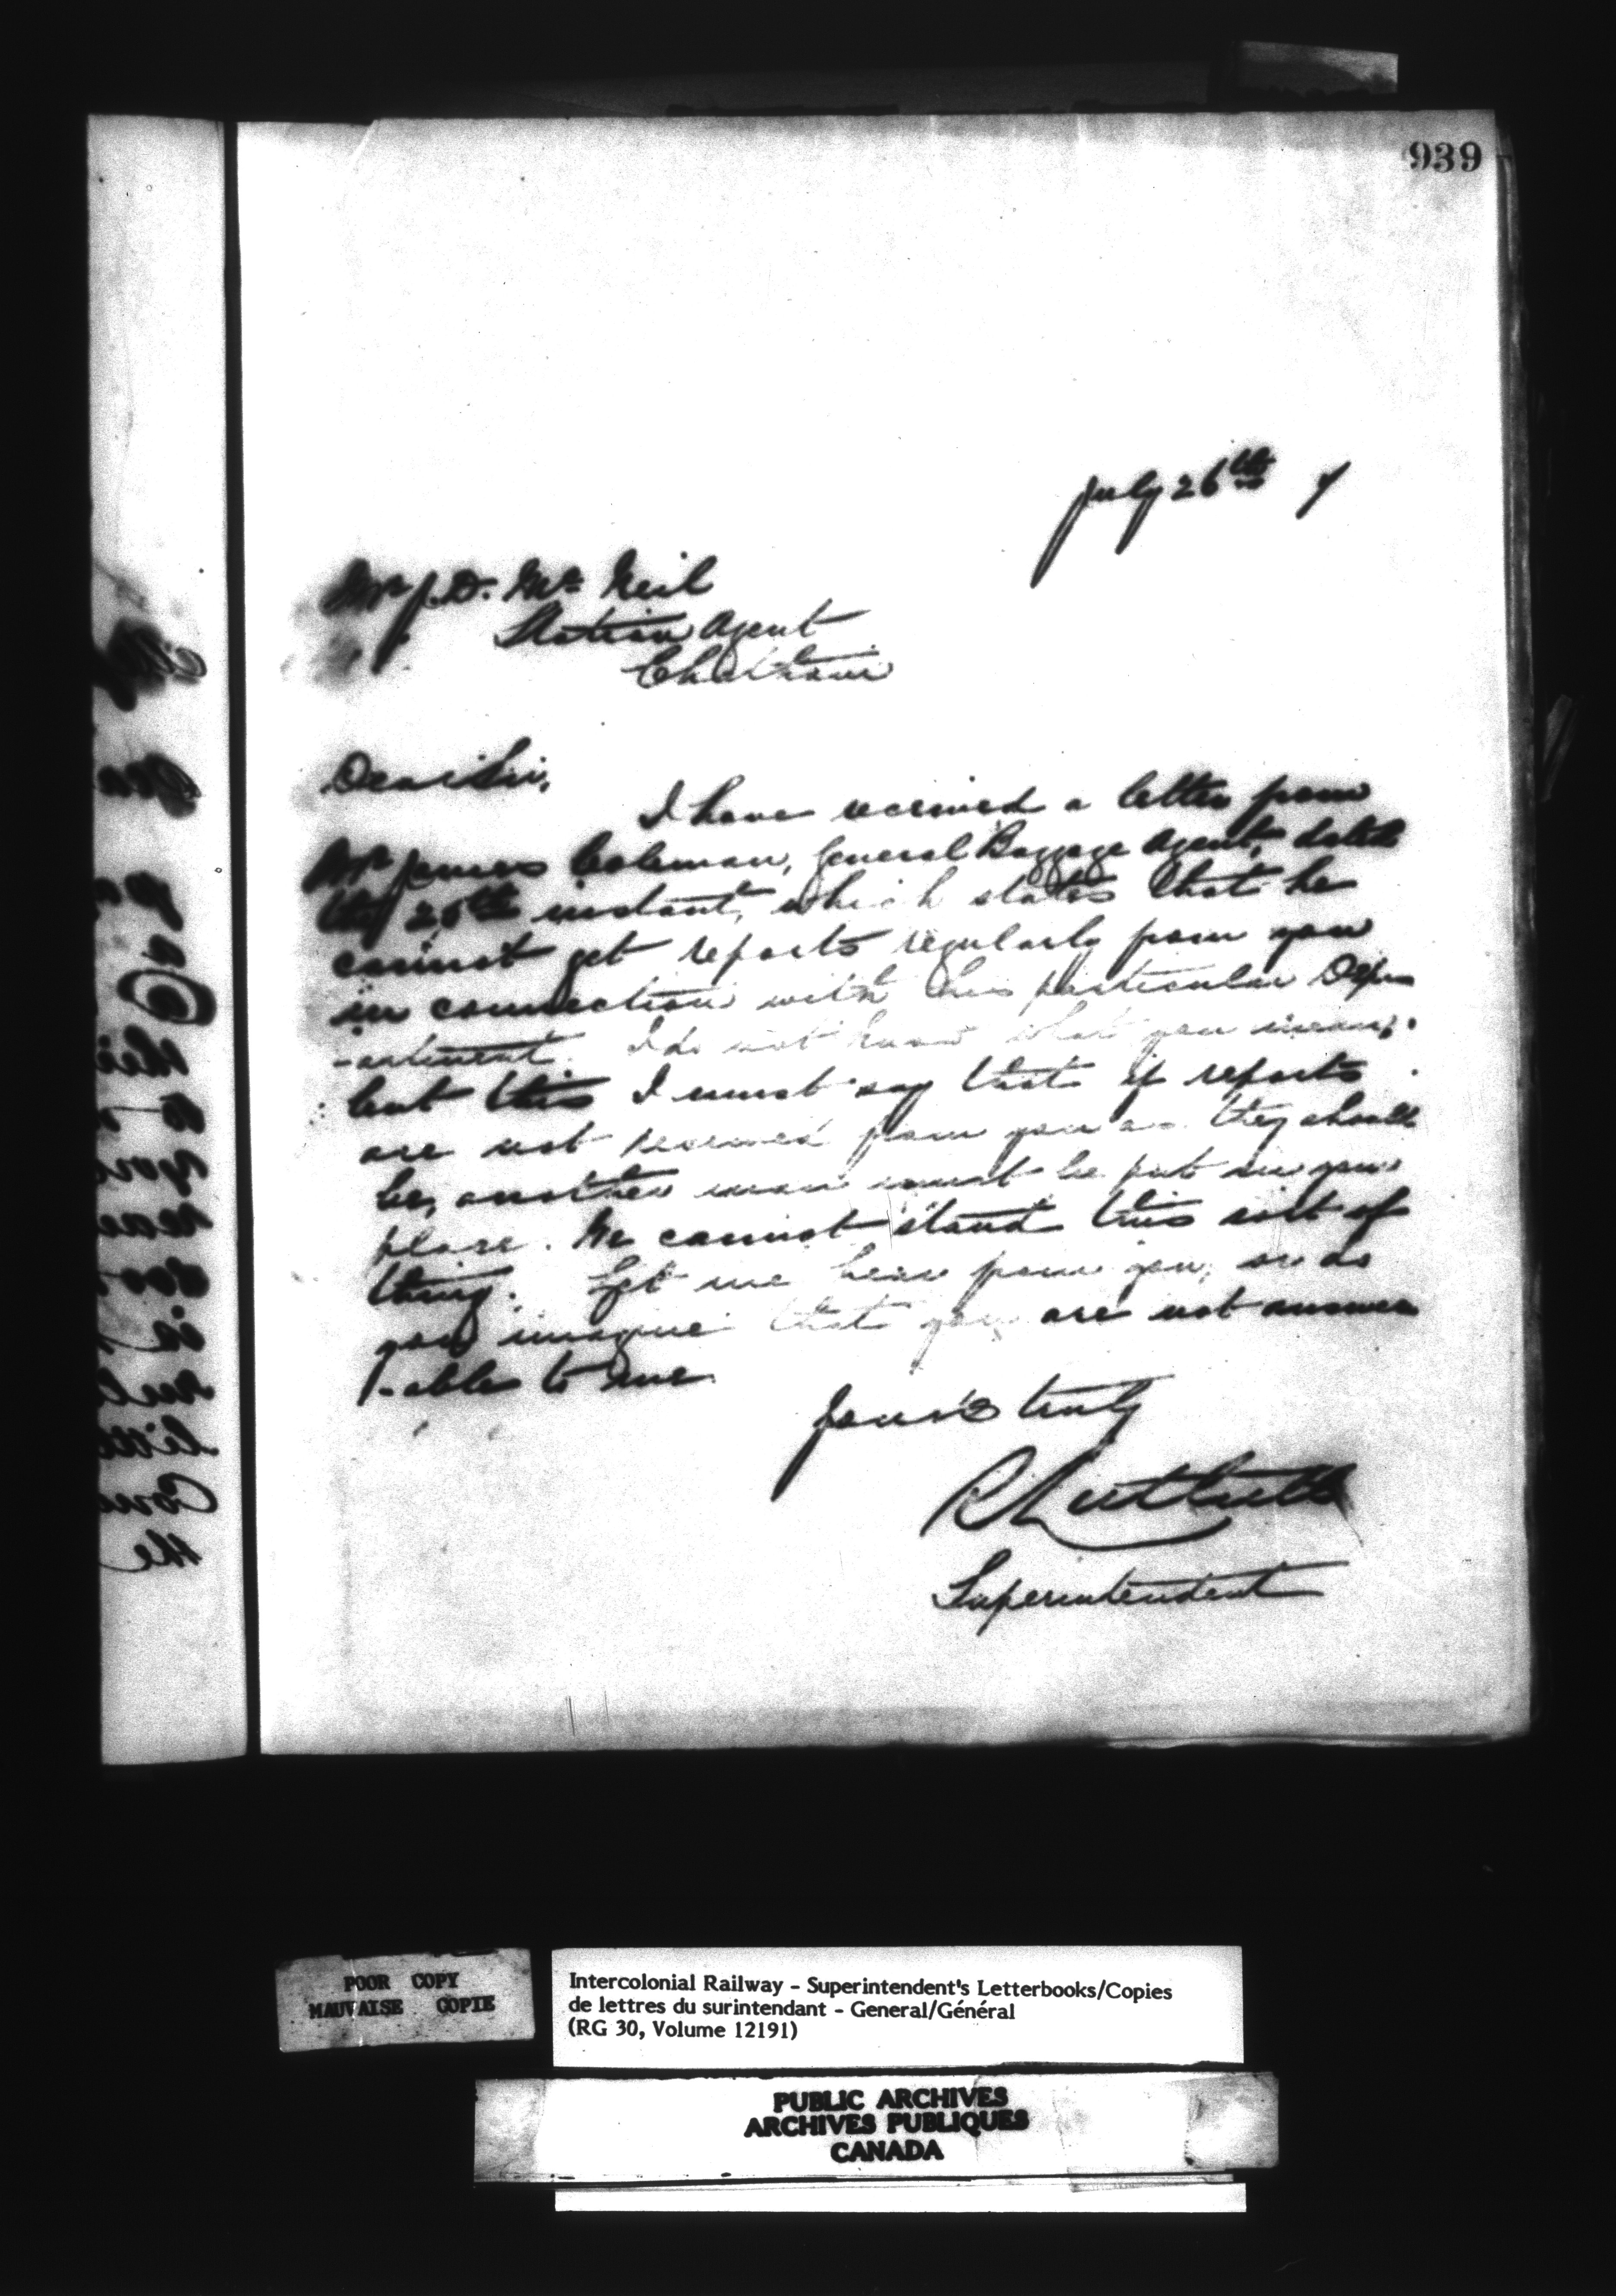 939
July 26th 7
Mr J. D. McNeil
Station Agent
Chatham
Dear Sir,
I have received a letter from
Mr James Coleman, General Baggage Agent, dated
the 25th instant, which states that he
cannot get reports regularly from you
in connection with his particular Dep-
-artment. I do not know what you mean,
but this I must say that if reports
are not received from you as they should
be, another man must be put in your
place. We cannot stand this sort of
thing. Let me hear from you, or do
you imagine that you are not answer
-able to me.
Yours truly
Superintendent
POOR COPY
MAUVAISE COPIE
Intercolonial Railway - Superintendent's Letterbooks/Copies
de lettres du surintendant - General/Général
(RG 30, Volume 12191)
PUBLIC ARCHIVES
ARCHIVES PUBLIQUES
CANADA